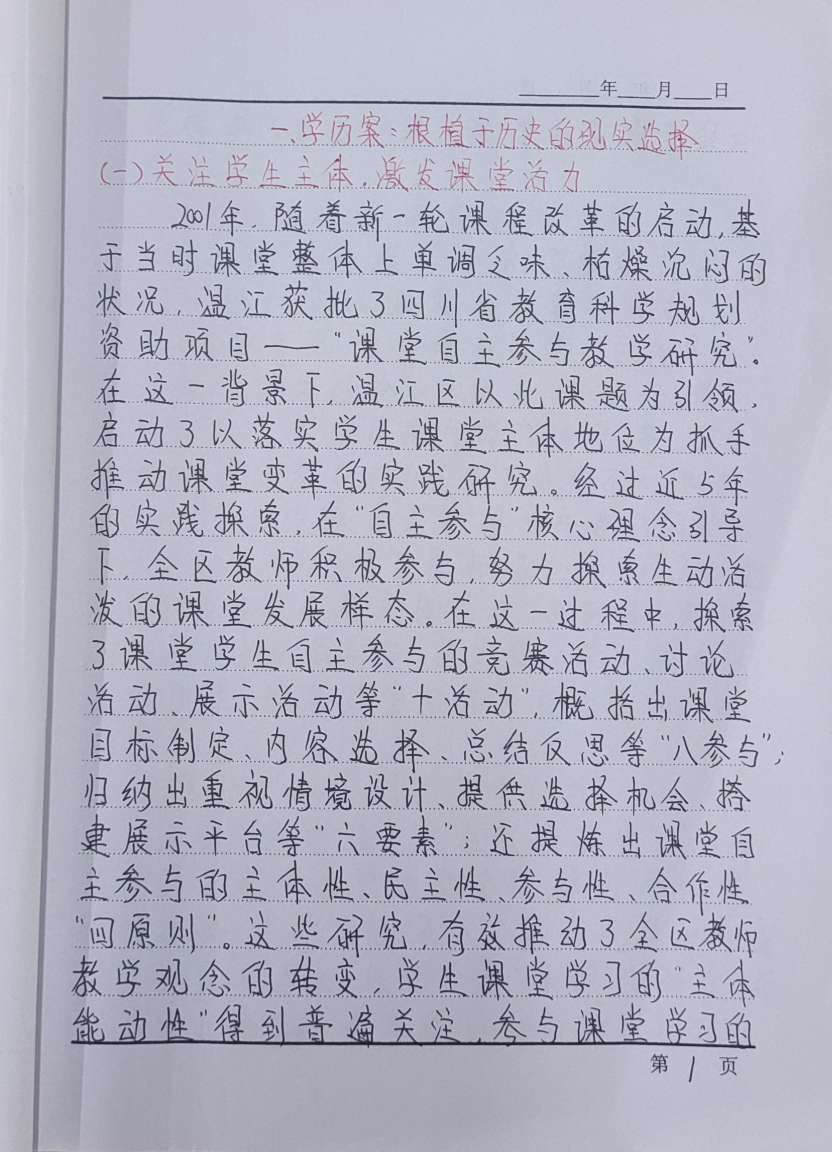 年 月 日
一、学历案：根植于历史的现实选择
（一）关注学生主体，激发课堂活力
2001年，随着新一轮课程改革的启动，基
于当时课堂整体上单调乏味、枯燥沉闷的
状况，温江获批了四川省教育科学规划
资助项目——“课堂自主参与教学研究”。
在这一背景下，温江区以此课题为引领，
启动了以落实学生课堂主体地位为抓手
推动课堂变革的实践研究。经过近5年
的实践探索，在“自主参与”核心理念引导
下，全区教师积极参与，努力探索生动活
泼的课堂发展样态。在这一过程中，探索
了课堂学生自主参与的竞赛活动、讨论
活动、展示活动等“十活动”，概括出课堂
目标制定、内容选择、总结反思等“八参与”；
归纳出重视情境设计、提供选择机会、搭
建展示平台等“六要素”；还提炼出课堂自
主参与的主体性、民主性、参与性、合作性
“四原则”。这些研究，有效推动了全区教师
教学观念的转变，学生课堂学习的“主体
能动性”得到普遍关注，参与课堂学习的
第 1 页